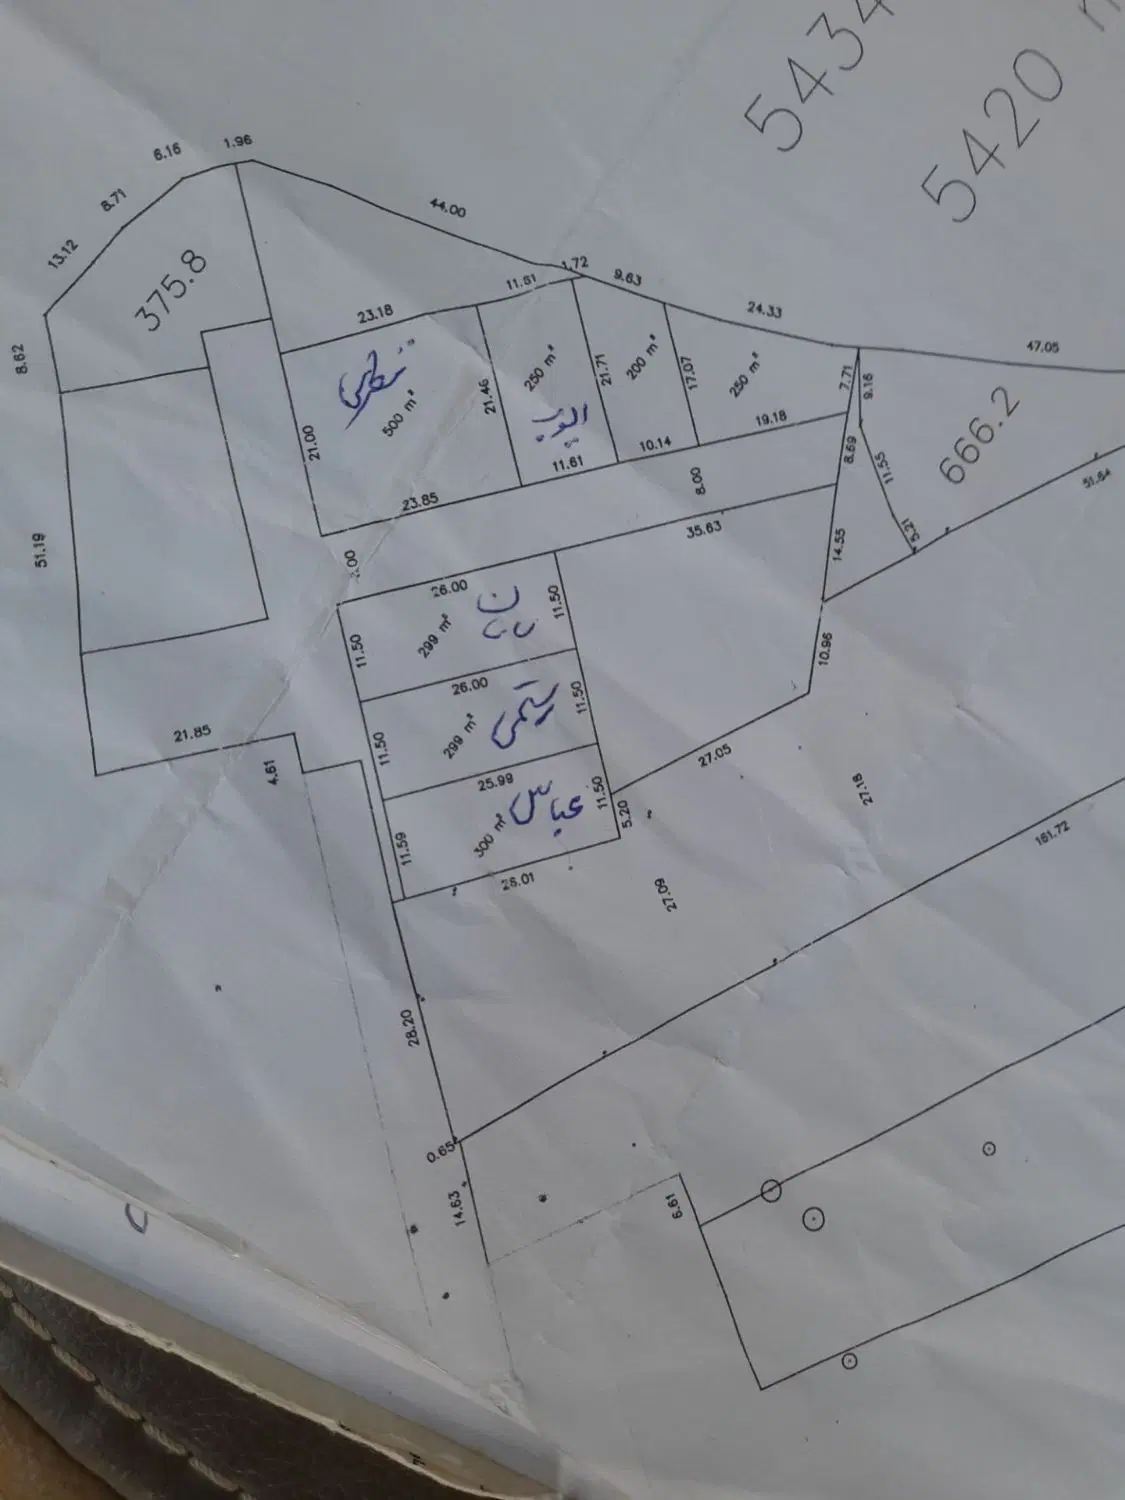 5434
5420
6.16
1.96
8.71
13.12
375.8
8.62
44.00
1.72
11.61
9.63
23.18
24.33
47.05
500 m²
21.00
21.46
250 m²
ایوب
21.71
200 m²
17.07
250 m²
7.71
9.16
19.18
10.14
11.61
23.85
8.00
8.69
11.55
666.2
5.21
51.64
35.63
14.55
51.19
26.00
299 m²
11.50
11.50
10.96
26.00
299 m²
رستمی
11.50
11.50
25.99
300 m²
عباس
11.59
11.50
5.20
27.05
27.18
21.85
4.61
27.09
161.72
28.20
0.65
14.63
6.61